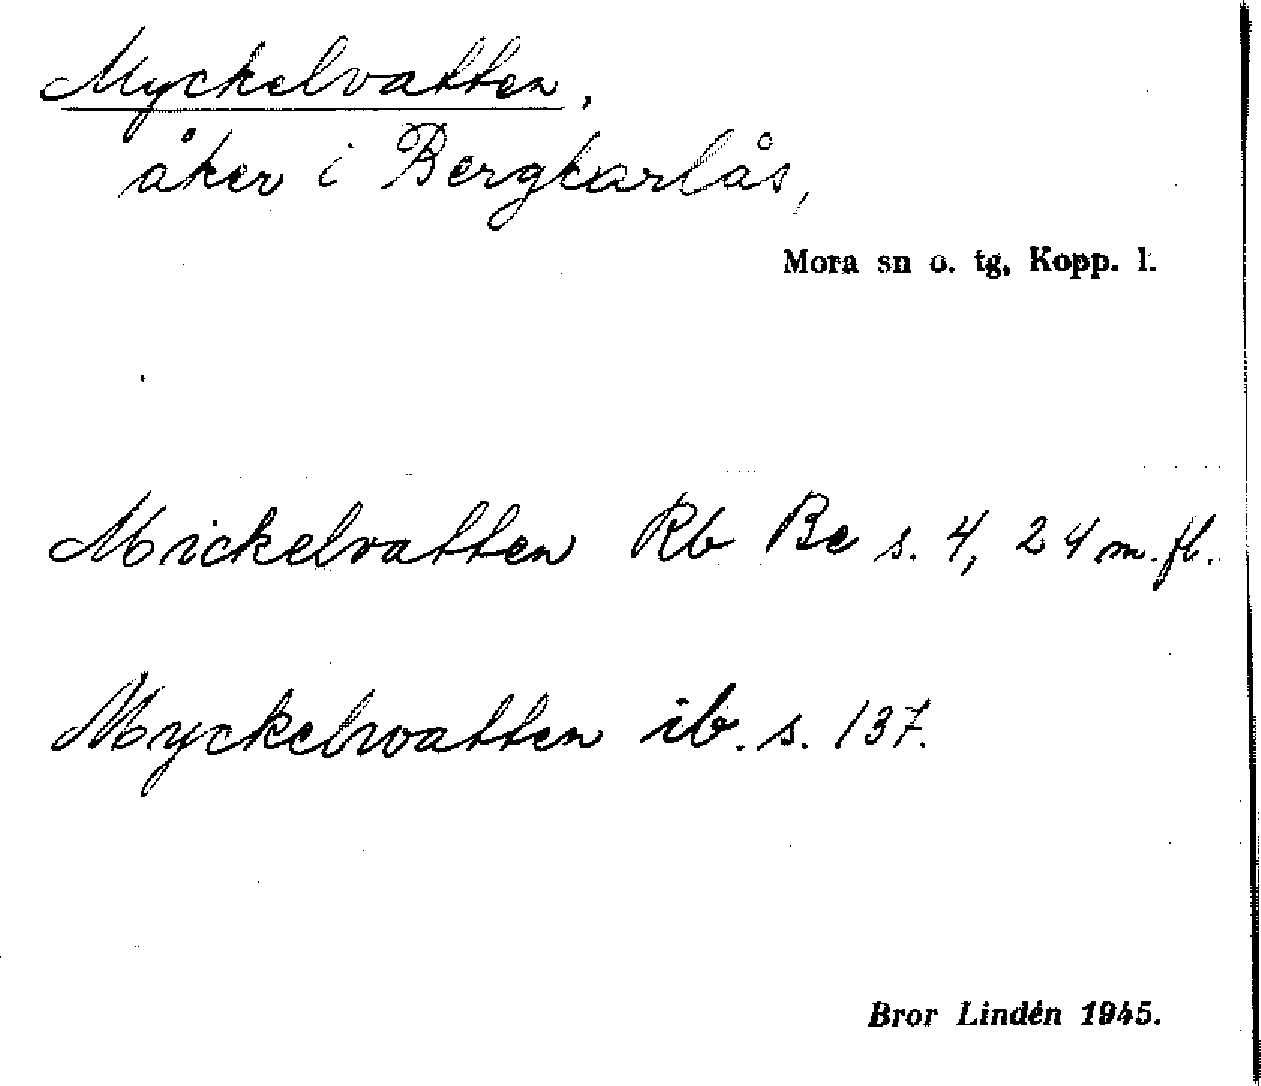 Myckelvatten,
åker i Bergkarlås,
Mora sn o. tg, Kopp. l.
Mickelvatten Rb Be s. 4, 24 m. fl.
Myckelwatten ib. s. 137.
Bror Lindén 1945.